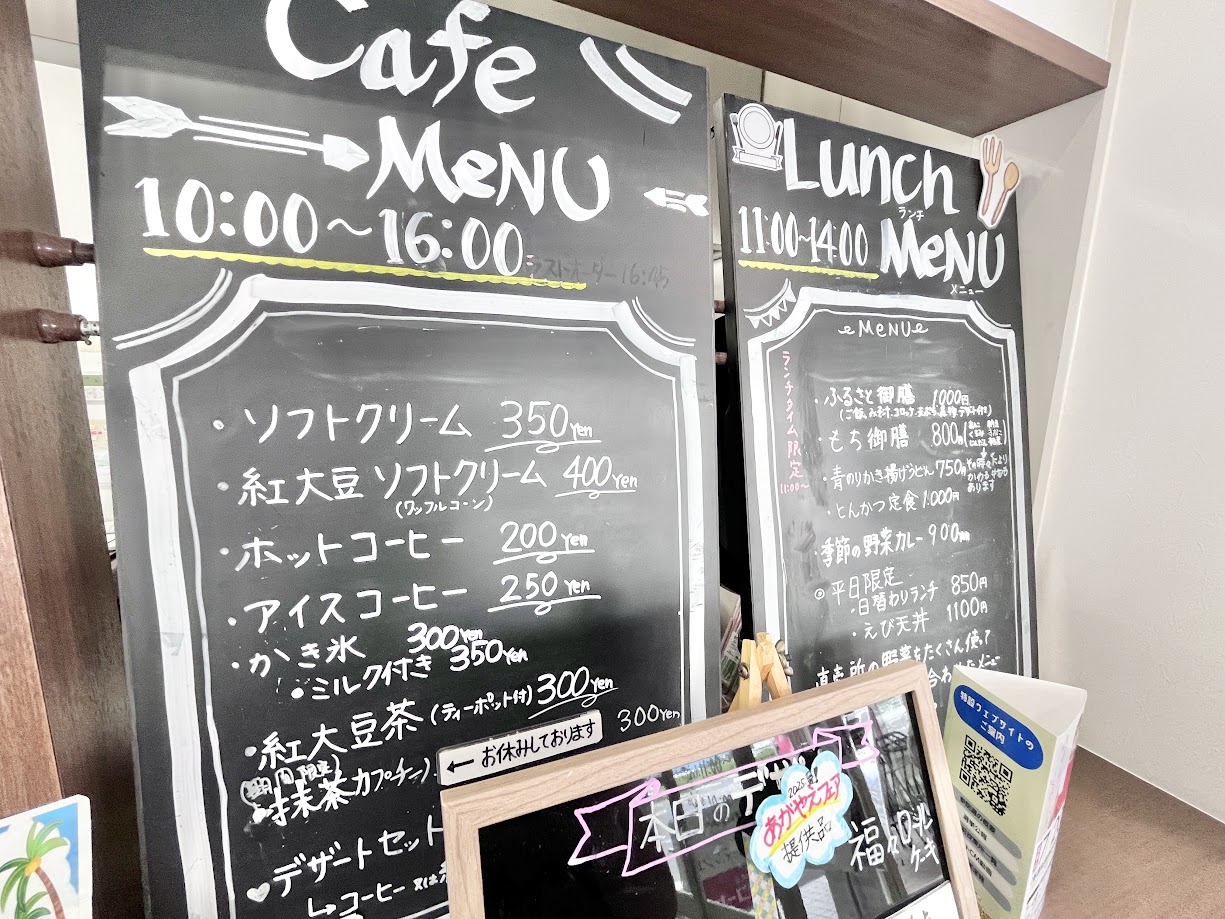 Cafe
MeNU
10:00~16:00
ラストオーダー 16:45
・ソフトクリーム 350yen
・紅大豆 ソフトクリーム 400yen
(ワッフルコーン)
・ホットコーヒー 200yen
・アイスコーヒー 250yen
・かき氷 300yen
・ミルク付き 350yen
・紅大豆茶 (ティーポット付) 300yen
・抹茶カプチーノ
300yen
← お休みしております
・デザートセット
↳コーヒー 又は
Lunch
ランチ
11:00~14:00 MeNU
メニュー
MeNU
ランチタイム限定
11:00~
・ふるさと御膳 1000円
・もち御膳 800円
・青のりかき揚げうどん 750円
・とんかつ定食 1.000円
・季節の野菜カレー 900yen
◎平日限定
・日替わりランチ 850円
・えび天丼 1100円
直売所の野菜をたくさん使って
本日のデザ
2025
あがやえフェア
提供品
福々ロール
ケーキ
特設ウェブサイトの
ご案内